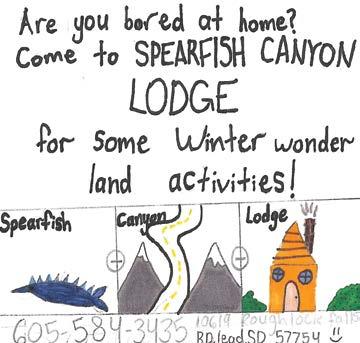 Are you bored at home?
Come to SPEARFISH CANYON
LODGE
for some Winter wonder
land activities!
Spearfish
Canyon
Lodge
605-584-3435 10619 Roughlock falls
RD, lead, SD 57754